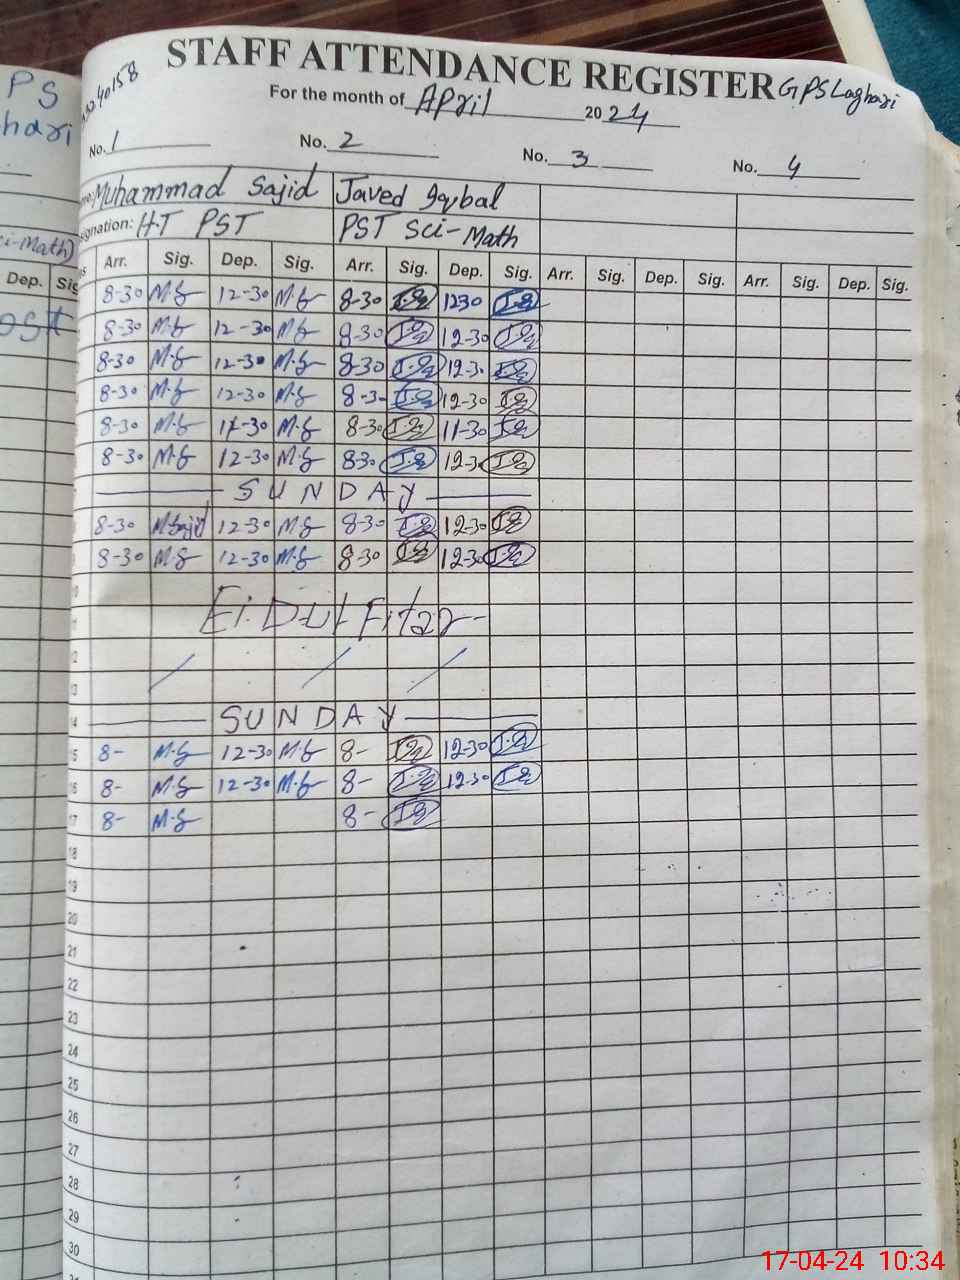 PS
hari
ci-Math)
Dep. Sig
40158
STAFF ATTENDANCE REGISTER GPS Laghari
For the month of April 2024
No. 1 No. 2 No. 3 No. 4
Muhammad Sajid Javed Iqbal
signation: H.T PST PST Sci-Math
Arr. Sig. Dep. Sig. Arr. Sig. Dep. Sig. Arr. Sig. Dep. Sig. Arr. Sig. Dep. Sig.
8-30 M.S 12-30 M.S 8-30 I.Q 1230 I.Q
8-30 M.S 12-30 M.S 8-30 I.Q 12-30 I.Q
8-30 M.S 12-30 M.S 8-30 I.Q 12-30 I.Q
8-30 M.S 12-30 M.S 8-3- I.Q 12-30 I.Q
8-30 M.S 11-30 M.S 8-30 I.Q 11-30 I.Q
8-30 M.S 12-30 M.S 8-30 I.Q 12-30 I.Q
SUNDAY
8-30 M.Sajid 12-30 M.S 8-30 I.Q 12-30 I.Q
8-30 M.S 12-30 M.S 8-30 I.Q 12-30 I.Q
10
11 Ei.D-ul Fitar-
12
13
14 SUNDAY
15 8- M.S 12-30 M.S 8- I.Q 12-30 I.Q
16 8- M.S 12-30 M.S 8- I.Q 12-30 I.Q
17 8- M.S 8- I.Q
18
19
20
21
22
23
24
25
26
27
28
29
30
17-04-24 10:34